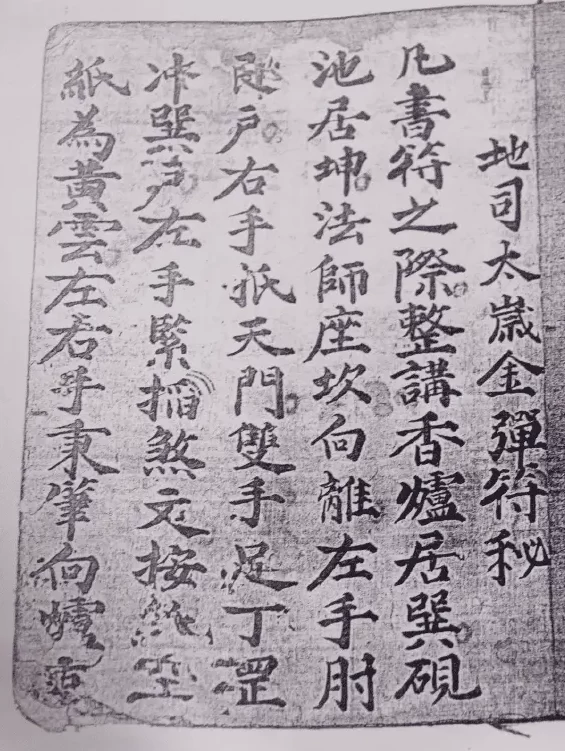 地司太歲金彈符秘
凡書符之際整講香爐居巽硯
池居坤法師座坎向離左手肘
戶右手抵天門雙手足丁罡
冲巽戶左手緊掐煞文按空
紙為黃雲左右手秉筆向爐